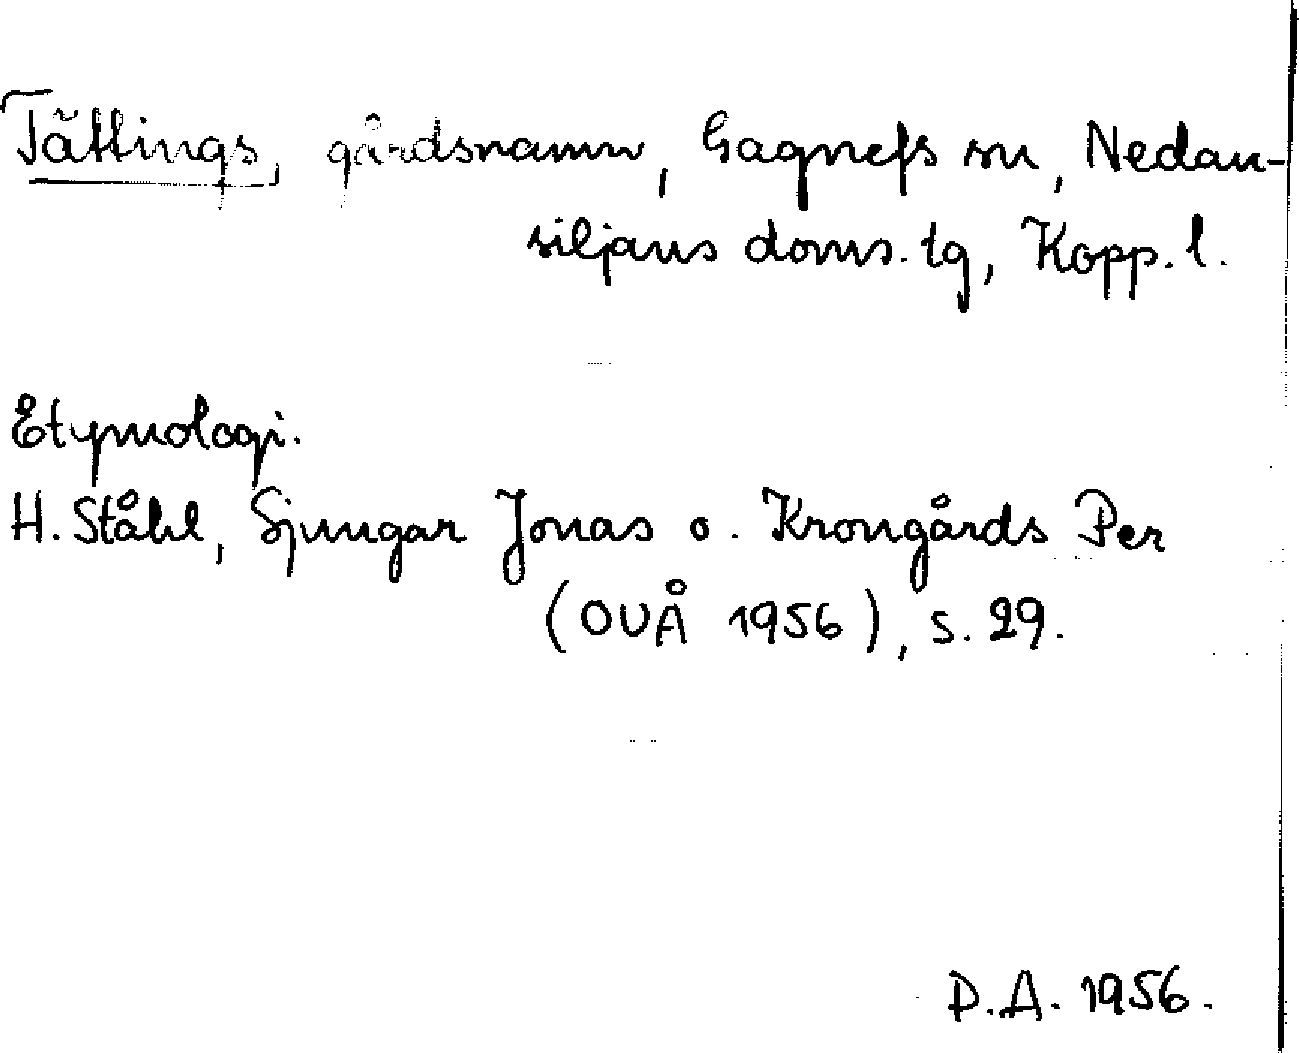 Tättings, gårdsnamn, Gagnefs sn, Nedan-
siljans doms. tg, Kopp. l.
Etymologi.
H. Ståhl, Sjungar Jonas o. Krongårds Per
(OUÅ 1956), s. 29.
D.A. 1956.